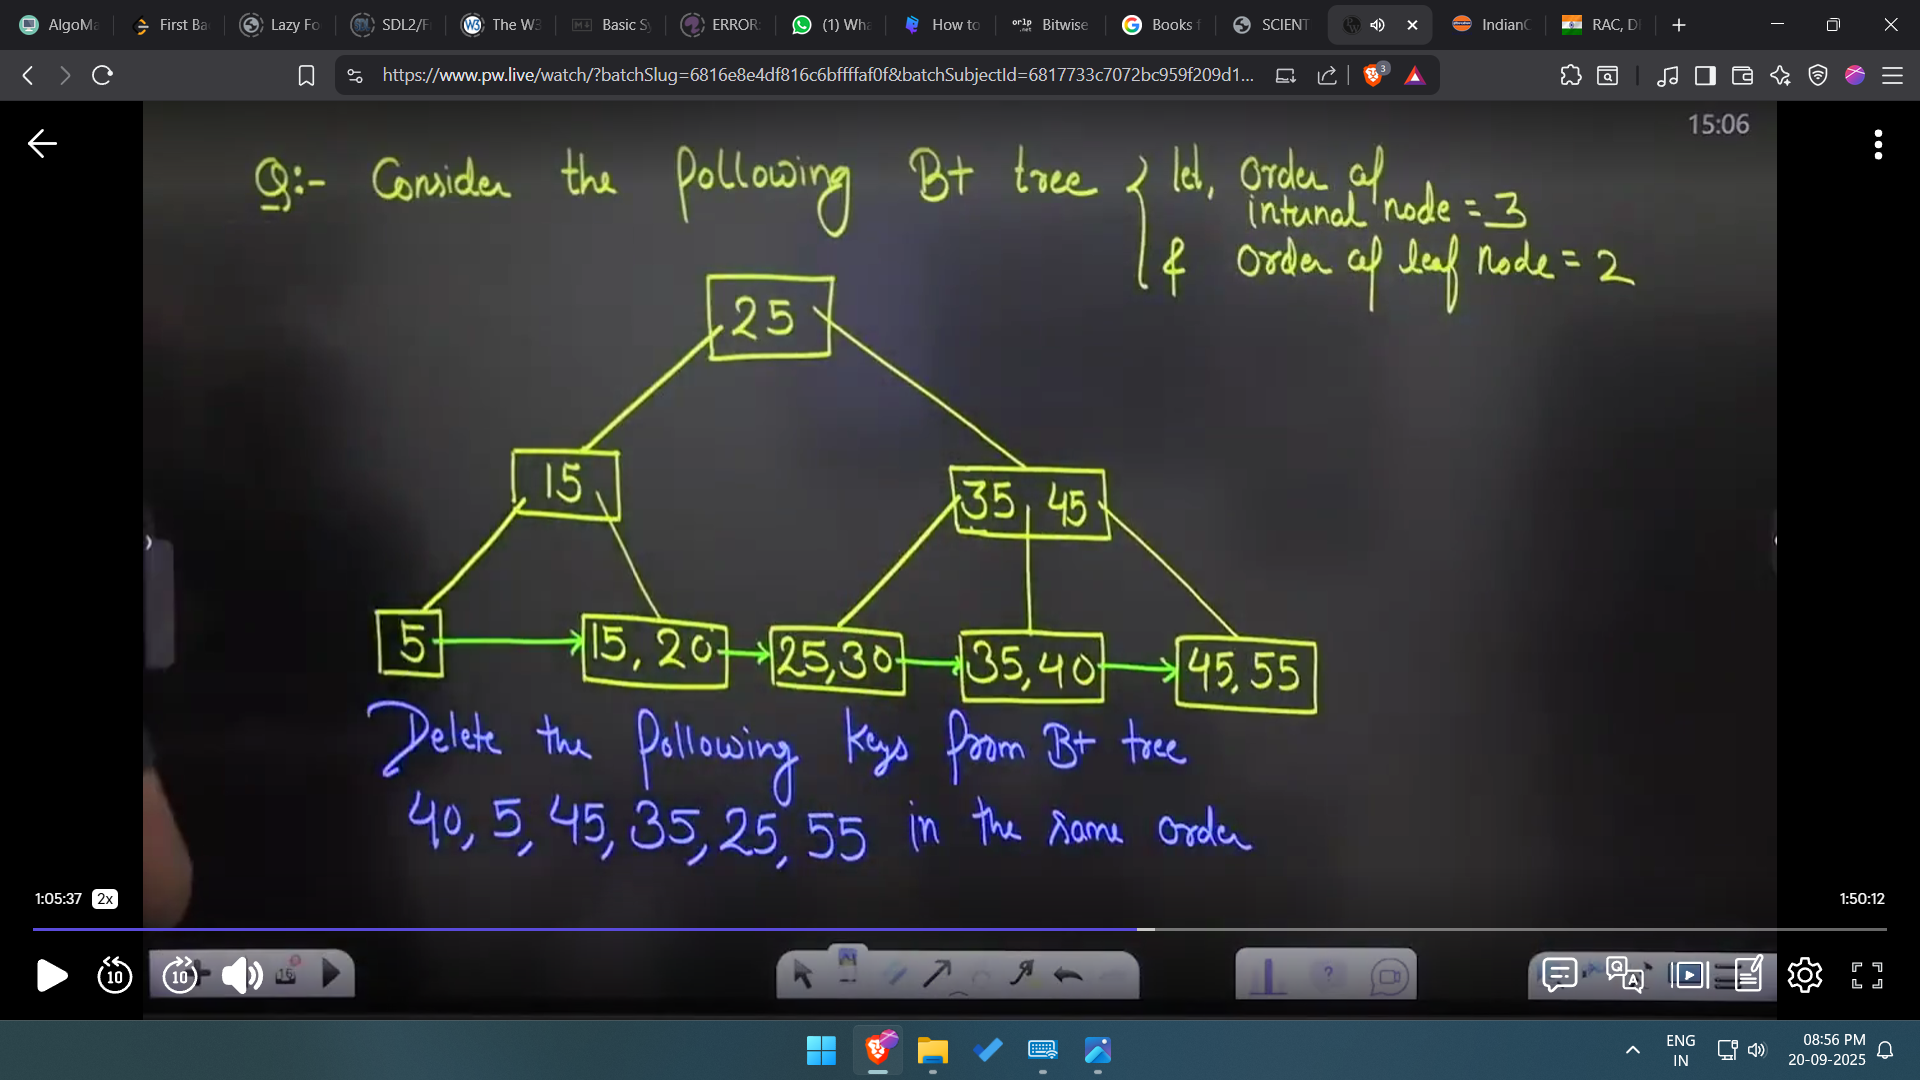 AlgoMa
First Ba
Lazy Fo
SDL2/F
The W3
Basic Sy
ERROR:
(1) Wha
How to
Bitwise
Books f
SCIENT
IndianC
RAC, D
https://www.pw.live/watch/?batchSlug=6816e8e4df816c6bffffaf0f&batchSubjectId=6817733c7072bc959f209d1...
3
15:06
Q:- Consider the following B+ tree { let, order of
internal node = 3
& order of leaf node = 2
25
15
35, 45
5
15, 20
25,30
35,40
45,55
Delete the following keys from B+ tree
40, 5, 45, 35, 25, 55 in the same order
1:05:37 2x
1:50:12
10
10
16
ENG
IN
08:56 PM
20-09-2025